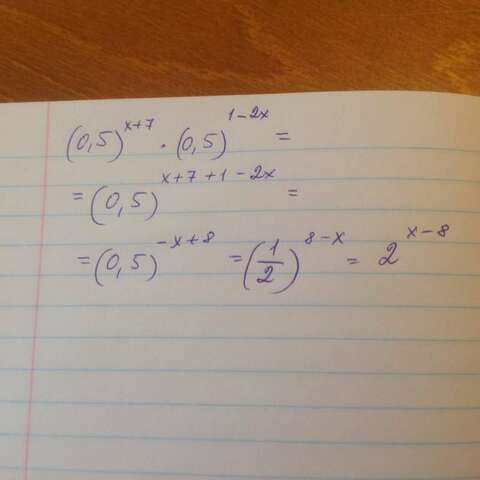 (0,5)^{x+7} · (0,5)^{1-2x} =
= (0,5)^{x+7+1-2x} =
= (0,5)^{-x+8} = (1/2)^{8-x} = 2^{x-8}